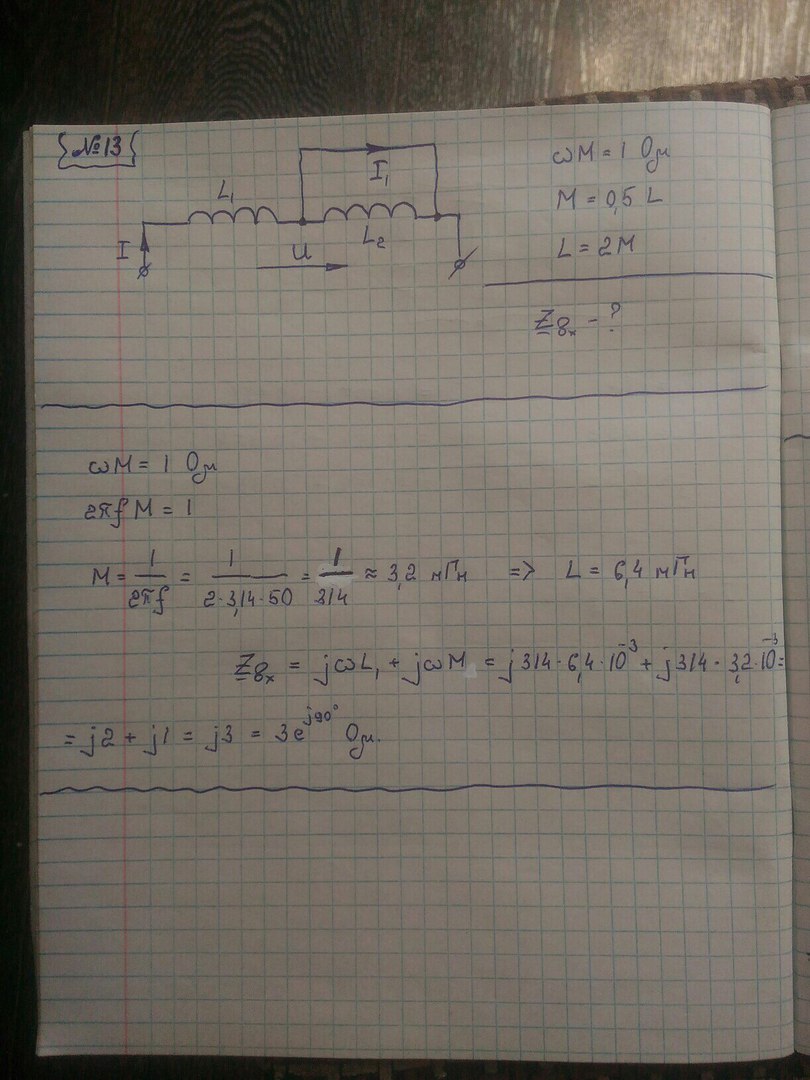 №13
L₁
I₁
I
U
L₂
ωM = 1 Ом
M = 0,5 L
L = 2M
Z вх - ?
ωM = 1 Ом
2πf M = 1
M = 1/2πf = 1/2·3,14·50 = 1/314 ≈ 3,2 мГн => L = 6,4 мГн
Z вх = jωL₁ + jωM = j314·6,4·10⁻³ + j314·3,2·10⁻³=
= j2 + j1 = j3 = 3e^j90° Ом.